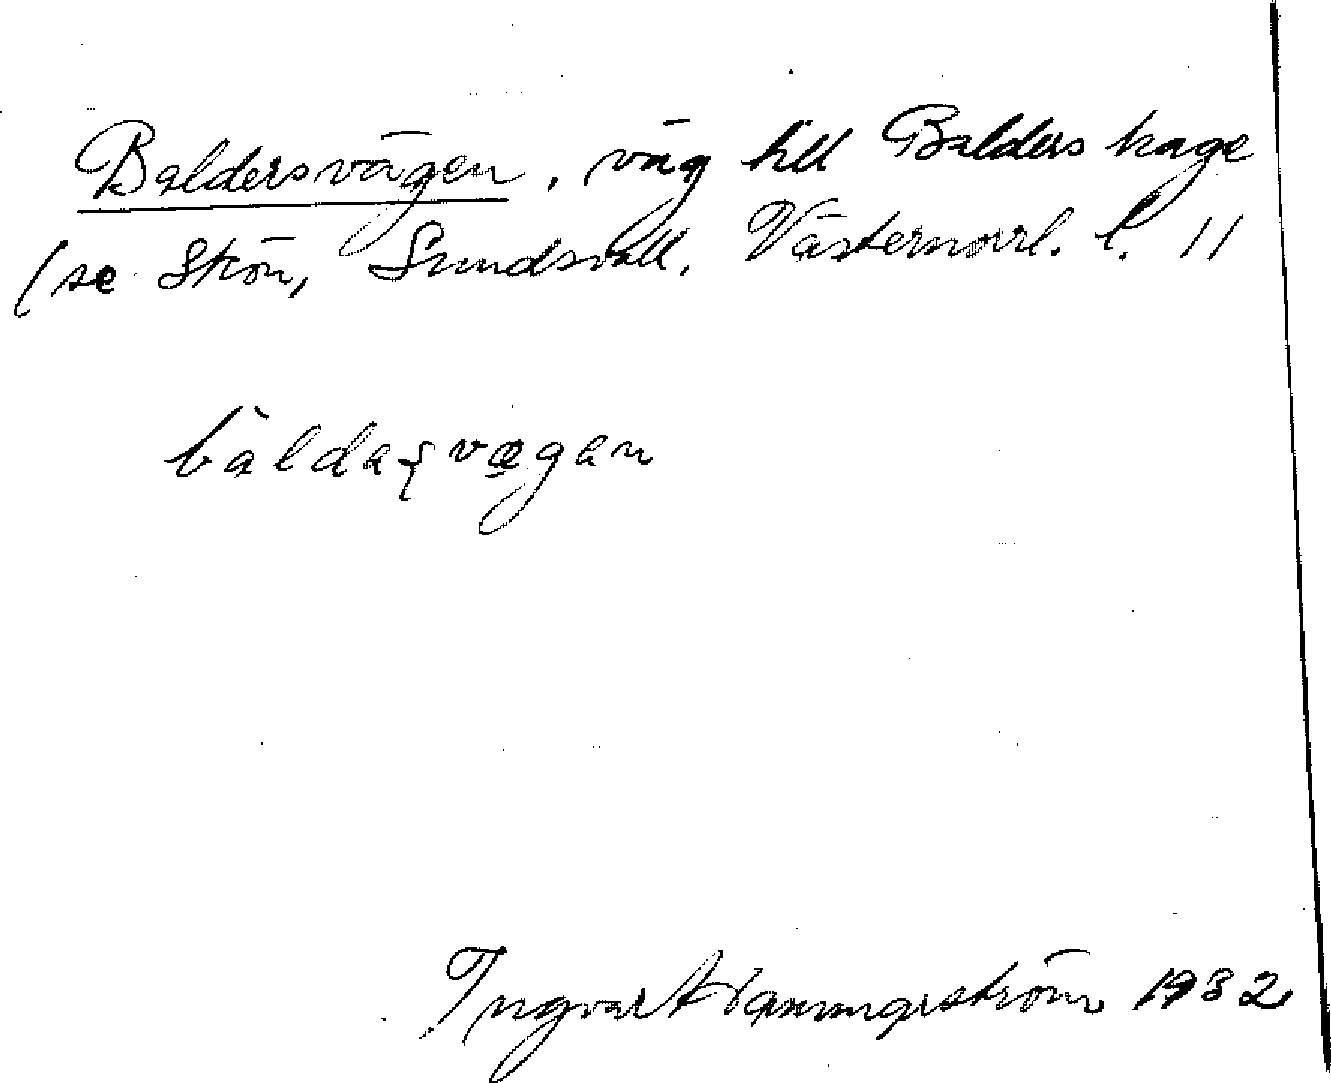 Baldersvägen, väg till Balders hage
(se Skön, Sundsvall, Västernorrl. l. //
bàldaʂvægan
Ingvar 1932